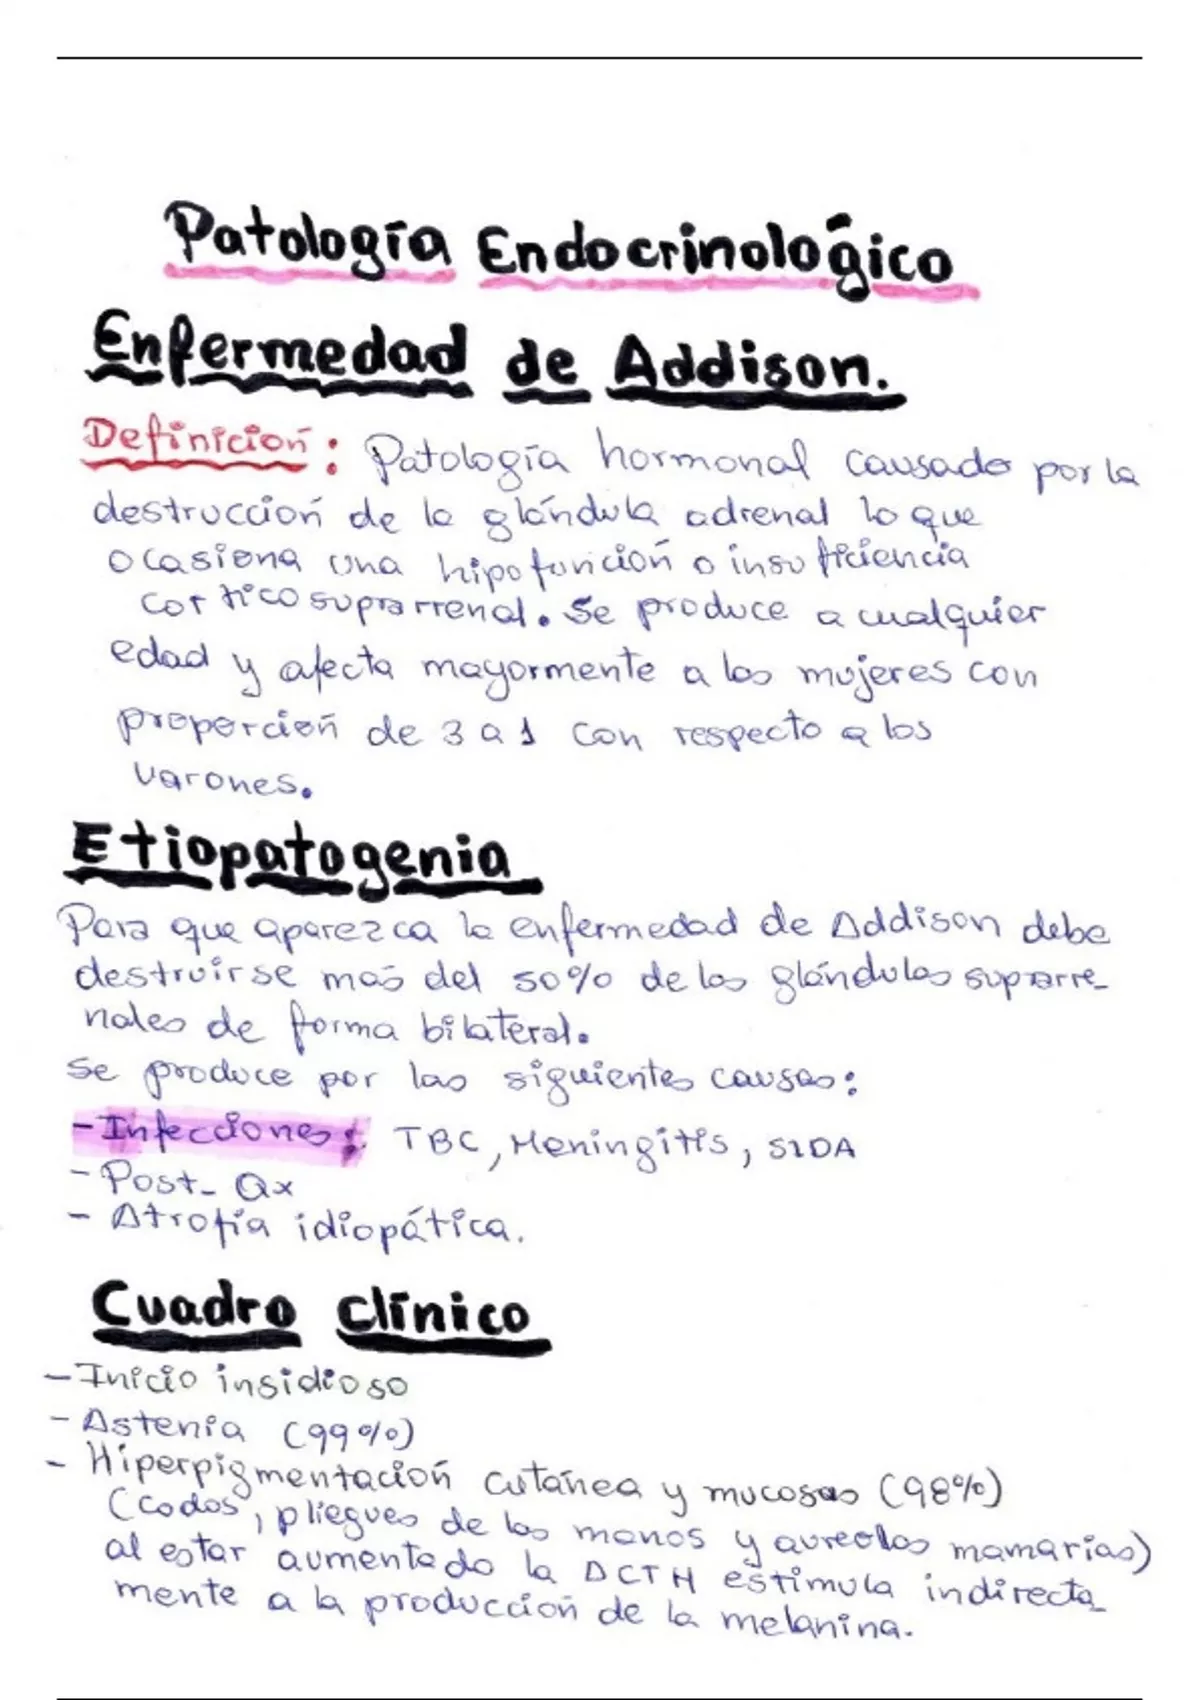 Patología Endocrinológico
Enfermedad de Addison.
Definición: Patología hormonal causado por la
destrucción de la glándula adrenal lo que
ocasiona una hipofunción o insuficiencia
corticosuprarrenal. Se produce a cualquier
edad y afecta mayormente a las mujeres con
proporción de 3 a 1 con respecto a los
varones.
Etiopatogenia
Para que aparezca la enfermedad de Addison debe
destruirse más del 50% de las glándulas suprarre_
nales de forma bilateral.
Se produce por las siguientes causas:
- Infecciones: TBC, Meningitis, SIDA
- Post- Qx
- Atrofia idiopática.
Cuadro clínico
- Inicio insidioso
- Astenia (99%)
- Hiperpigmentación cutánea y mucosas (98%)
(codos, pliegues de las manos y aureolas mamarias)
al estar aumentado la ACTH estimula indirecta_
mente a la producción de la melanina.